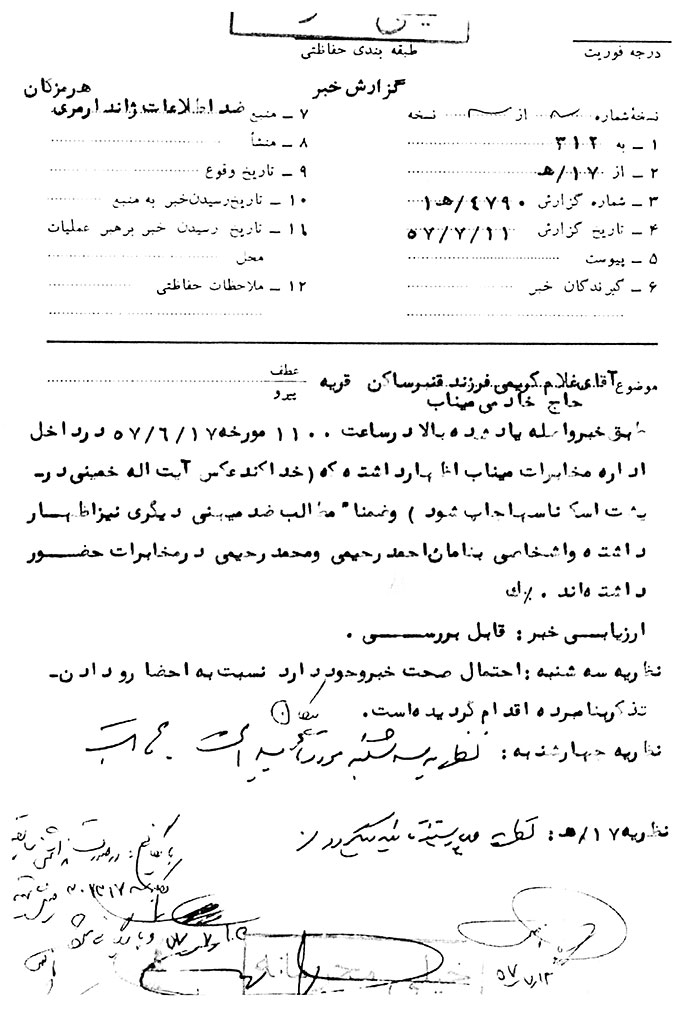 طبقه بندی حفاظتی
درجه فوریت
گزارش خبر
هرمزگان
نسخهٔ شماره از نسخه
۱ ـ به ۳۱۲
۲ ـ از ۱۷/هـ
۳ ـ شماره گزارش ۴۷۹۰/هـ۱
۴ ـ تاریخ گزارش ۵۷/۷/۱۱
۵ ـ پیوست
۶ ـ گیرندگان خبر
۷ ـ منبع ضد اطلاعات ژاندارمری
۸ ـ منشأ
۹ ـ تاریخ وقوع
۱۰ ـ تاریخ رسیدن خبر به منبع
۱۱ ـ تاریخ رسیدن خبر برهبر عملیات
محل
۱۲ ـ ملاحظات حفاظتی
موضوع آقای غلام کریمی فرزند قنبر ساکن قریه
حاج خادمی میناب
عطف
پیرو
طبق خبر واصله یاد شده بالا در ساعت ۱۱۰۰ مورخه ۵۷/۶/۱۷ در داخل
اداره مخابرات میناب اظهار داشته که (خدا کند عکس آیت اله خمینی در ـ
پشت اسکناسها چاپ شود) و ضمناً مطالب ضد میهنی دیگری نیز اظهار
داشته و اشخاصی بنامان احمد رحیمی و محمد رحیمی در مخابرات حضور
داشته‌اند .
ارزیابی خبر : قابل بررسی .
نظریه سه شنبه : احتمال صحت خبر وجود دارد نسبت به احضار و دادن ـ
تذکر بنامبرده اقدام گردیده است .
نظریه چهارشنبه : نظریه سه شنبه مورد تایید است
نظریه ۱۷/هـ : نظریه
۵۷/۷/۱۲
خیلی محرمانه